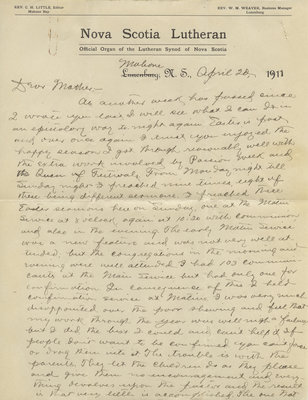 REV. C. H. LITTLE, Editor
Mahone Bay
REV. W. M. WEAVER, Business Manager
Lunenburg
Nova Scotia Lutheran
Official Organ of the Lutheran Synod of Nova Scotia
Mahone
Lunenburg, N. S., April 22, 1911
Dear Mother:-
As another week has passed since
I wrote you last I will see what I can do in
an epistolary way to night again. Easter is past
and over once again. I trust you enjoyed the
happy season. I got through reasonably well with
the extra work involved by Passion Week and
the Queen of Festivals. From Monday night till
Sunday night I preached nine times, eight of
these being different sermons. I preached three
Easter sermons here on Sunday, one at the Matin
Service at 8 o'clock, again at 10:30 with communion
and also in the evening. The early Matin Service
was a new feature and was not very well at-
tended, but the congregations in the morning and
evening were well attended. I had 103 communi-
cants at the Main Service but had only one for
confirmation. In consequence of this I held
confirmation service at Matins. I was very much
disappointed over the poor showing and feel that
my work through the year was well nigh a failure
but I did the best I could and can't help it if
people don't want to be confirmed you can't force
or drag them into it. The trouble is with the
parents. They let the children do as they please
and give them no encouragement and every
thing devolves upon the pastor and the result
is that very little is accomplished. The one that